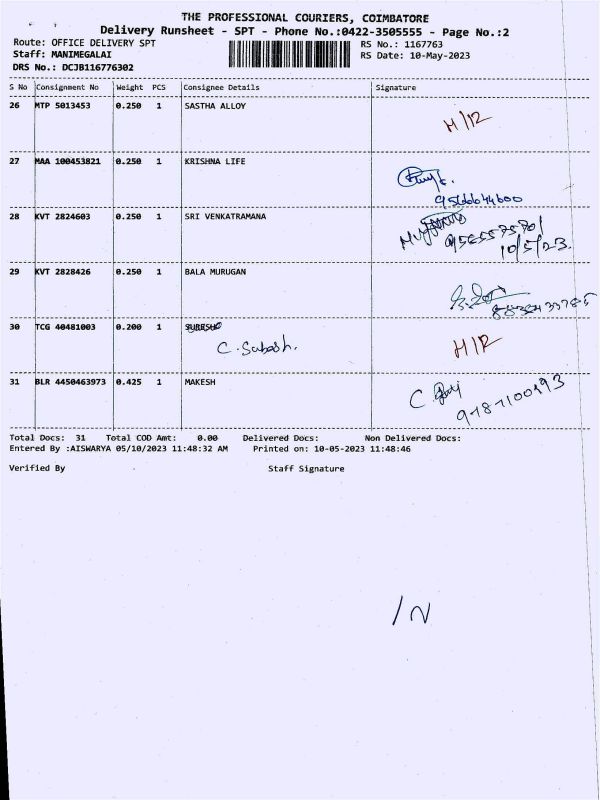 THE PROFESSIONAL COURIERS, COIMBATORE
Delivery Runsheet - SPT - Phone No.:0422-3505555 - Page No.:2
Route: OFFICE DELIVERY SPT
RS No.: 1167763
Staff: MANIMEGALAI
RS Date: 10-May-2023
DRS No.: DCJB116776302
S No Consignment No Weight PCS Consignee Details Signature
26 MTP 5013453 0.250 1 SASTHA ALLOY
27 MAA 100453821 0.250 1 KRISHNA LIFE
28 KVT 2824603 0.250 1 SRI VENKATRAMANA
10/5/23.
29 KVT 2828426 0.250 1 BALA MURUGAN
30 TCG 40481003 0.200 1 SURESH
C. Subash.
31 BLR 4450463973 0.425 1 MAKESH
Total Docs: 31 Total COD Amt: 0.00 Delivered Docs: Non Delivered Docs:
Entered By :AISWARYA 05/10/2023 11:48:32 AM Printed on: 10-05-2023 11:48:46
Verified By Staff Signature